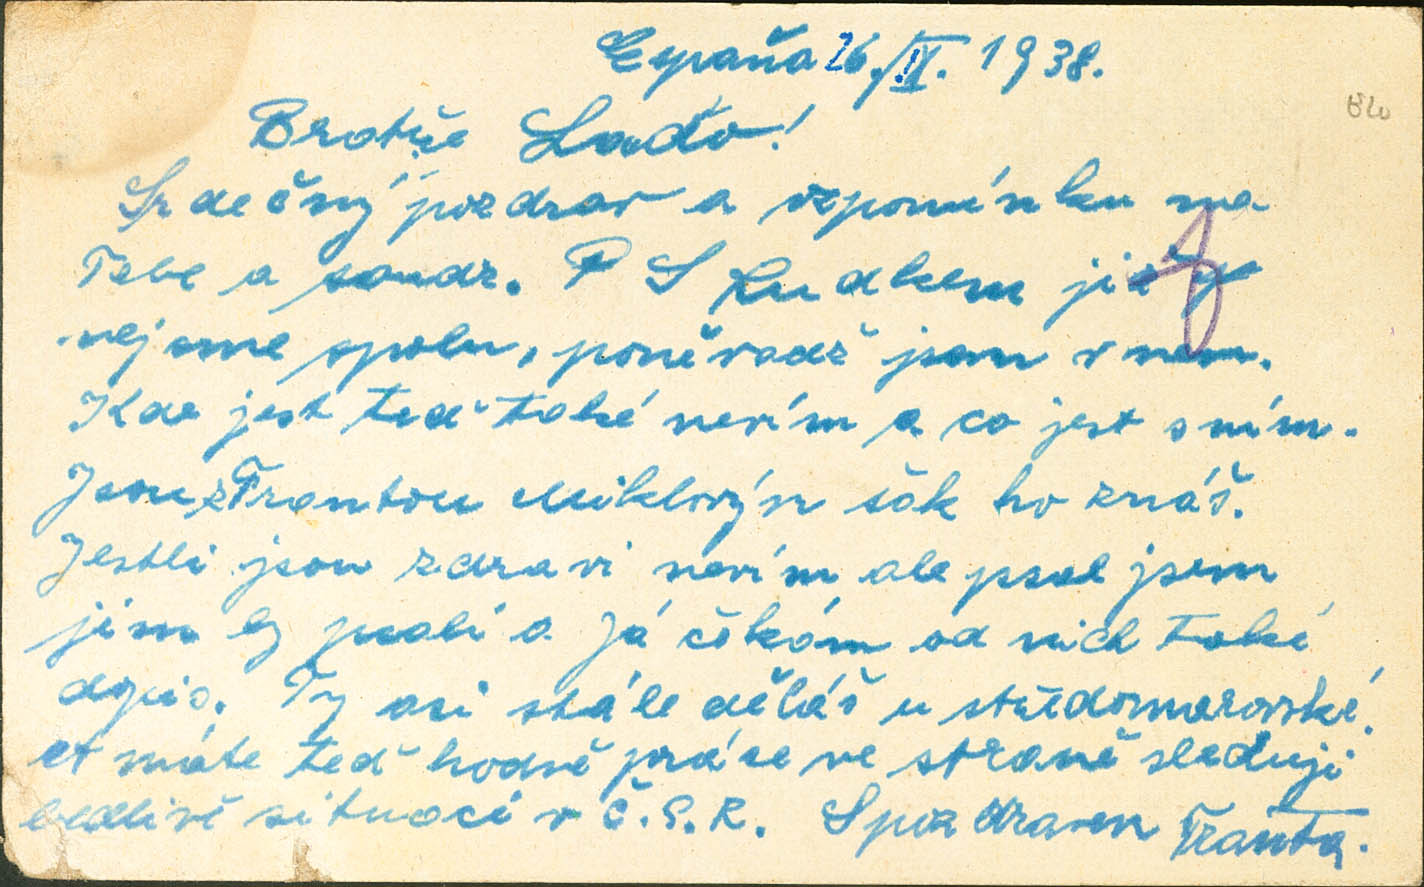 España 26./IV. 1938.
Bratře Laďo!
Srdečný pozdrav a vzpomínku na
Tebe a soudr. P S Luďkem již
nejsme spolu, poněvadž jsem v nem.
Kde jest teď také nevím a co jest s ním.
Jsou z Frantou Miklovým šak ho znáš.
Jestli jsou zdravi nevím ale psal jsem
jím by psali a Já čekám od nich také
dopis. Ty asi stále děláš u středomoravské.
et máte teď hodně práce ve straně sleduji
bedlivě situaci v Č.S.R. S pozdravem Franta.